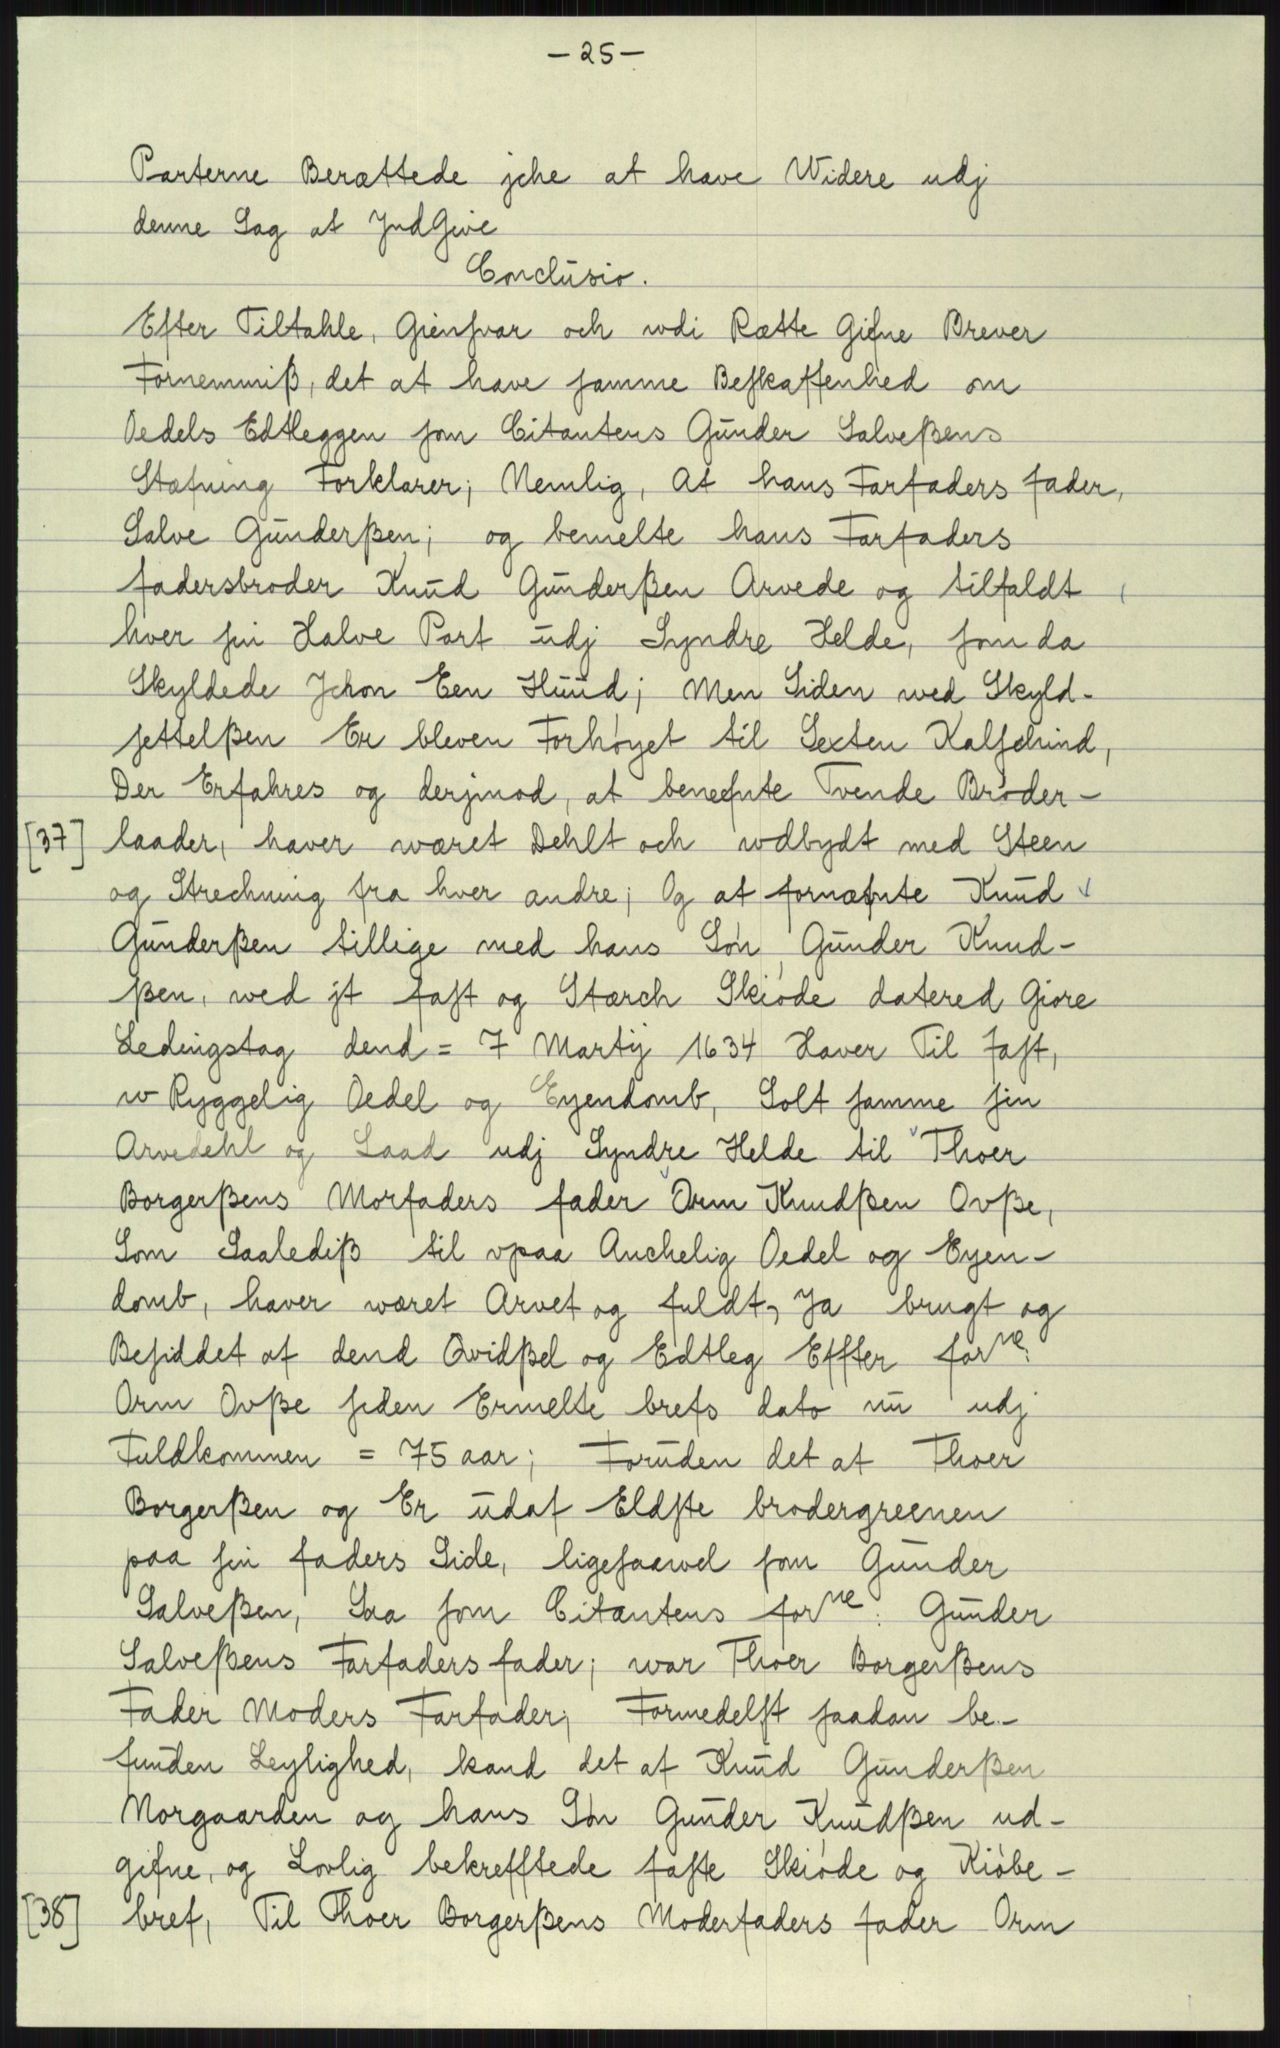 — 25 —
Parterne Berættede jche at have Widere udj
denne Sag at JndGive
Conclusio.
Efter Tiltahle, Giensvar och wdi Rætte Gifne Brever
Fornemmiß, det at have samme Beskaffenhed om
Oedels Edtleggen som Citantens Gunder Salveßens
Stæfning Forklarer; Nemlig, At hans Farfaders fader,
Salve Gunderßen; og bemelte hans Farfaders
fadersbroder Knud Gunderßen Arvede og tilfaldt
hver sin Halve Part udj Syndre Helde, som da
Skyldede Jchon Een Huud; Men Siden wed Skyld-
settelßen Er bleven Forhøyet til Sexten Kalfchind,
Der Erfahres og derjmod, at benefnte Tvende Brøder-
[37] laader, haver wæret Dehlt och wdbydt med Steen
og Strechning fra hver andre; Og at fornæfnte Knud
Gunderßen tillige med hans Søn, Gunder Knud-
ßen, wed jt fast og Stærch Skiøde datered Giøre
Ledingstag dend = 7 Martij 1634 Haver Til Fast,
w Ryggelig Oedel og Eyendomb, Solt samme sin
Arvedehl og Laad udj Syndre Helde til Thoer
Borgerßens Morfaders fader Orm Knudßen Ovße,
Som Saalediß til vpaa Anchelig Oedel og Eyen-
domb, haver wæret Arvet og fuldt, Ja brugt og
Besiddet af dend Qvidßel og Edtleg Effter forne:
Orm Ovße siden Ermelte brefs dato nu udj
Fuldkommen = 75 aar; Foruden det at Thoer
Borgerßen og Er udaf Eldste brodergreenen
paa sin faders Side, ligesaavel som Gunder
Salveßen, Saa som Citantens forne: Gunder
Salveßens Farfaders fader; war Thoer Borgerßens
Fader Moders Farfader; Formedelst saadan be-
funden Leylighed, kand det af Knud Gunderßen
Norgaarden og hans Søn Gunder Knudßen ud-
gifne, og Lovlig bekrefftede faste Skiøde og Kiøbe-
[38] bref, Til Thoer Borgerßens Moderfaders fader Orm